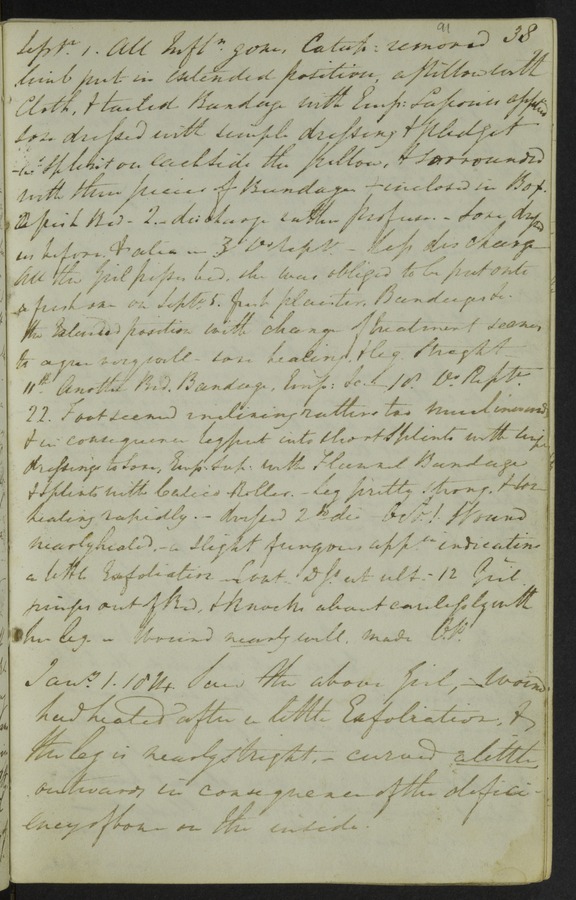 91 38
Septr. 1. All Infln. gone, Catap: removed
limb put in extended position, a pillow with
Cloth, & tailed Bandage with Emp: Saponis applied
sore dressed with simple dressing & pledget
splint on each side the pillow, & surrounded
with three pieces of Bandage - inclosed in Box.
fresh Bed - 2. - discharge rather profuse. - Sore dressed
as before, 3d. Vs. Rept. - less discharge
All the Girl pisses bed, she was obliged to be put onto
a fresh one on Septr. 5. fresh plaister, Bandages &c.
the Extended position with change of treatment seems
to agree very well - sore healing & leg straight
11th. Another Bed. Bandage, Emp: 18. Vs. Rept.
22. Foot seemed inclining rather too much inwards
& in consequence leg put into short Splints with simple
dressings to sore, Emp: Sap: with Flannel Bandage
& splints with Calico Roller. - Leg pretty strong, & sore
healing rapidly. - dressed 2nd. die Octr. 1. Wound
nearly healed. - a slight fungous appce. indicating
a little Exfoliation - ut ult. - 12 Girl
jumps out of Bed, & knocks about carelessly with
her leg. - Wound nearly well. made O.P.
Jany. 1. 1814. Saw the above Girl, - wound
had healed after a little Exfoliation, &
the leg is nearly straight, - curved a little
outwards in consequence of the defici-
ency of bone on the inside.